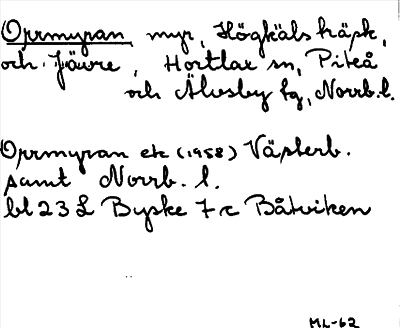 Ormyran, myr, Högkälsträsk,
och Jävre, Hortlax sn, Piteå
och Älvsby tg, Norrb. l.
Ormyran ek (1958) Västerb.
samt Norrb. l.
bl 23 L Byske 7 c Båtviken
ML-62